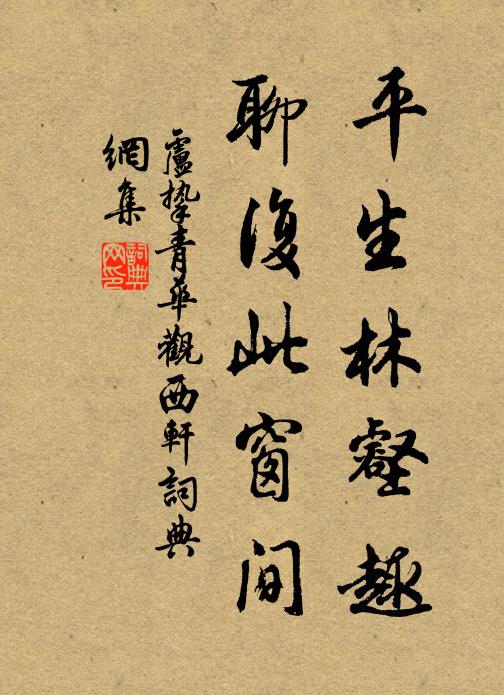 平生林壑趣
聊復此窗間
盧摯青華觀西軒詞典
網集
詞典網印